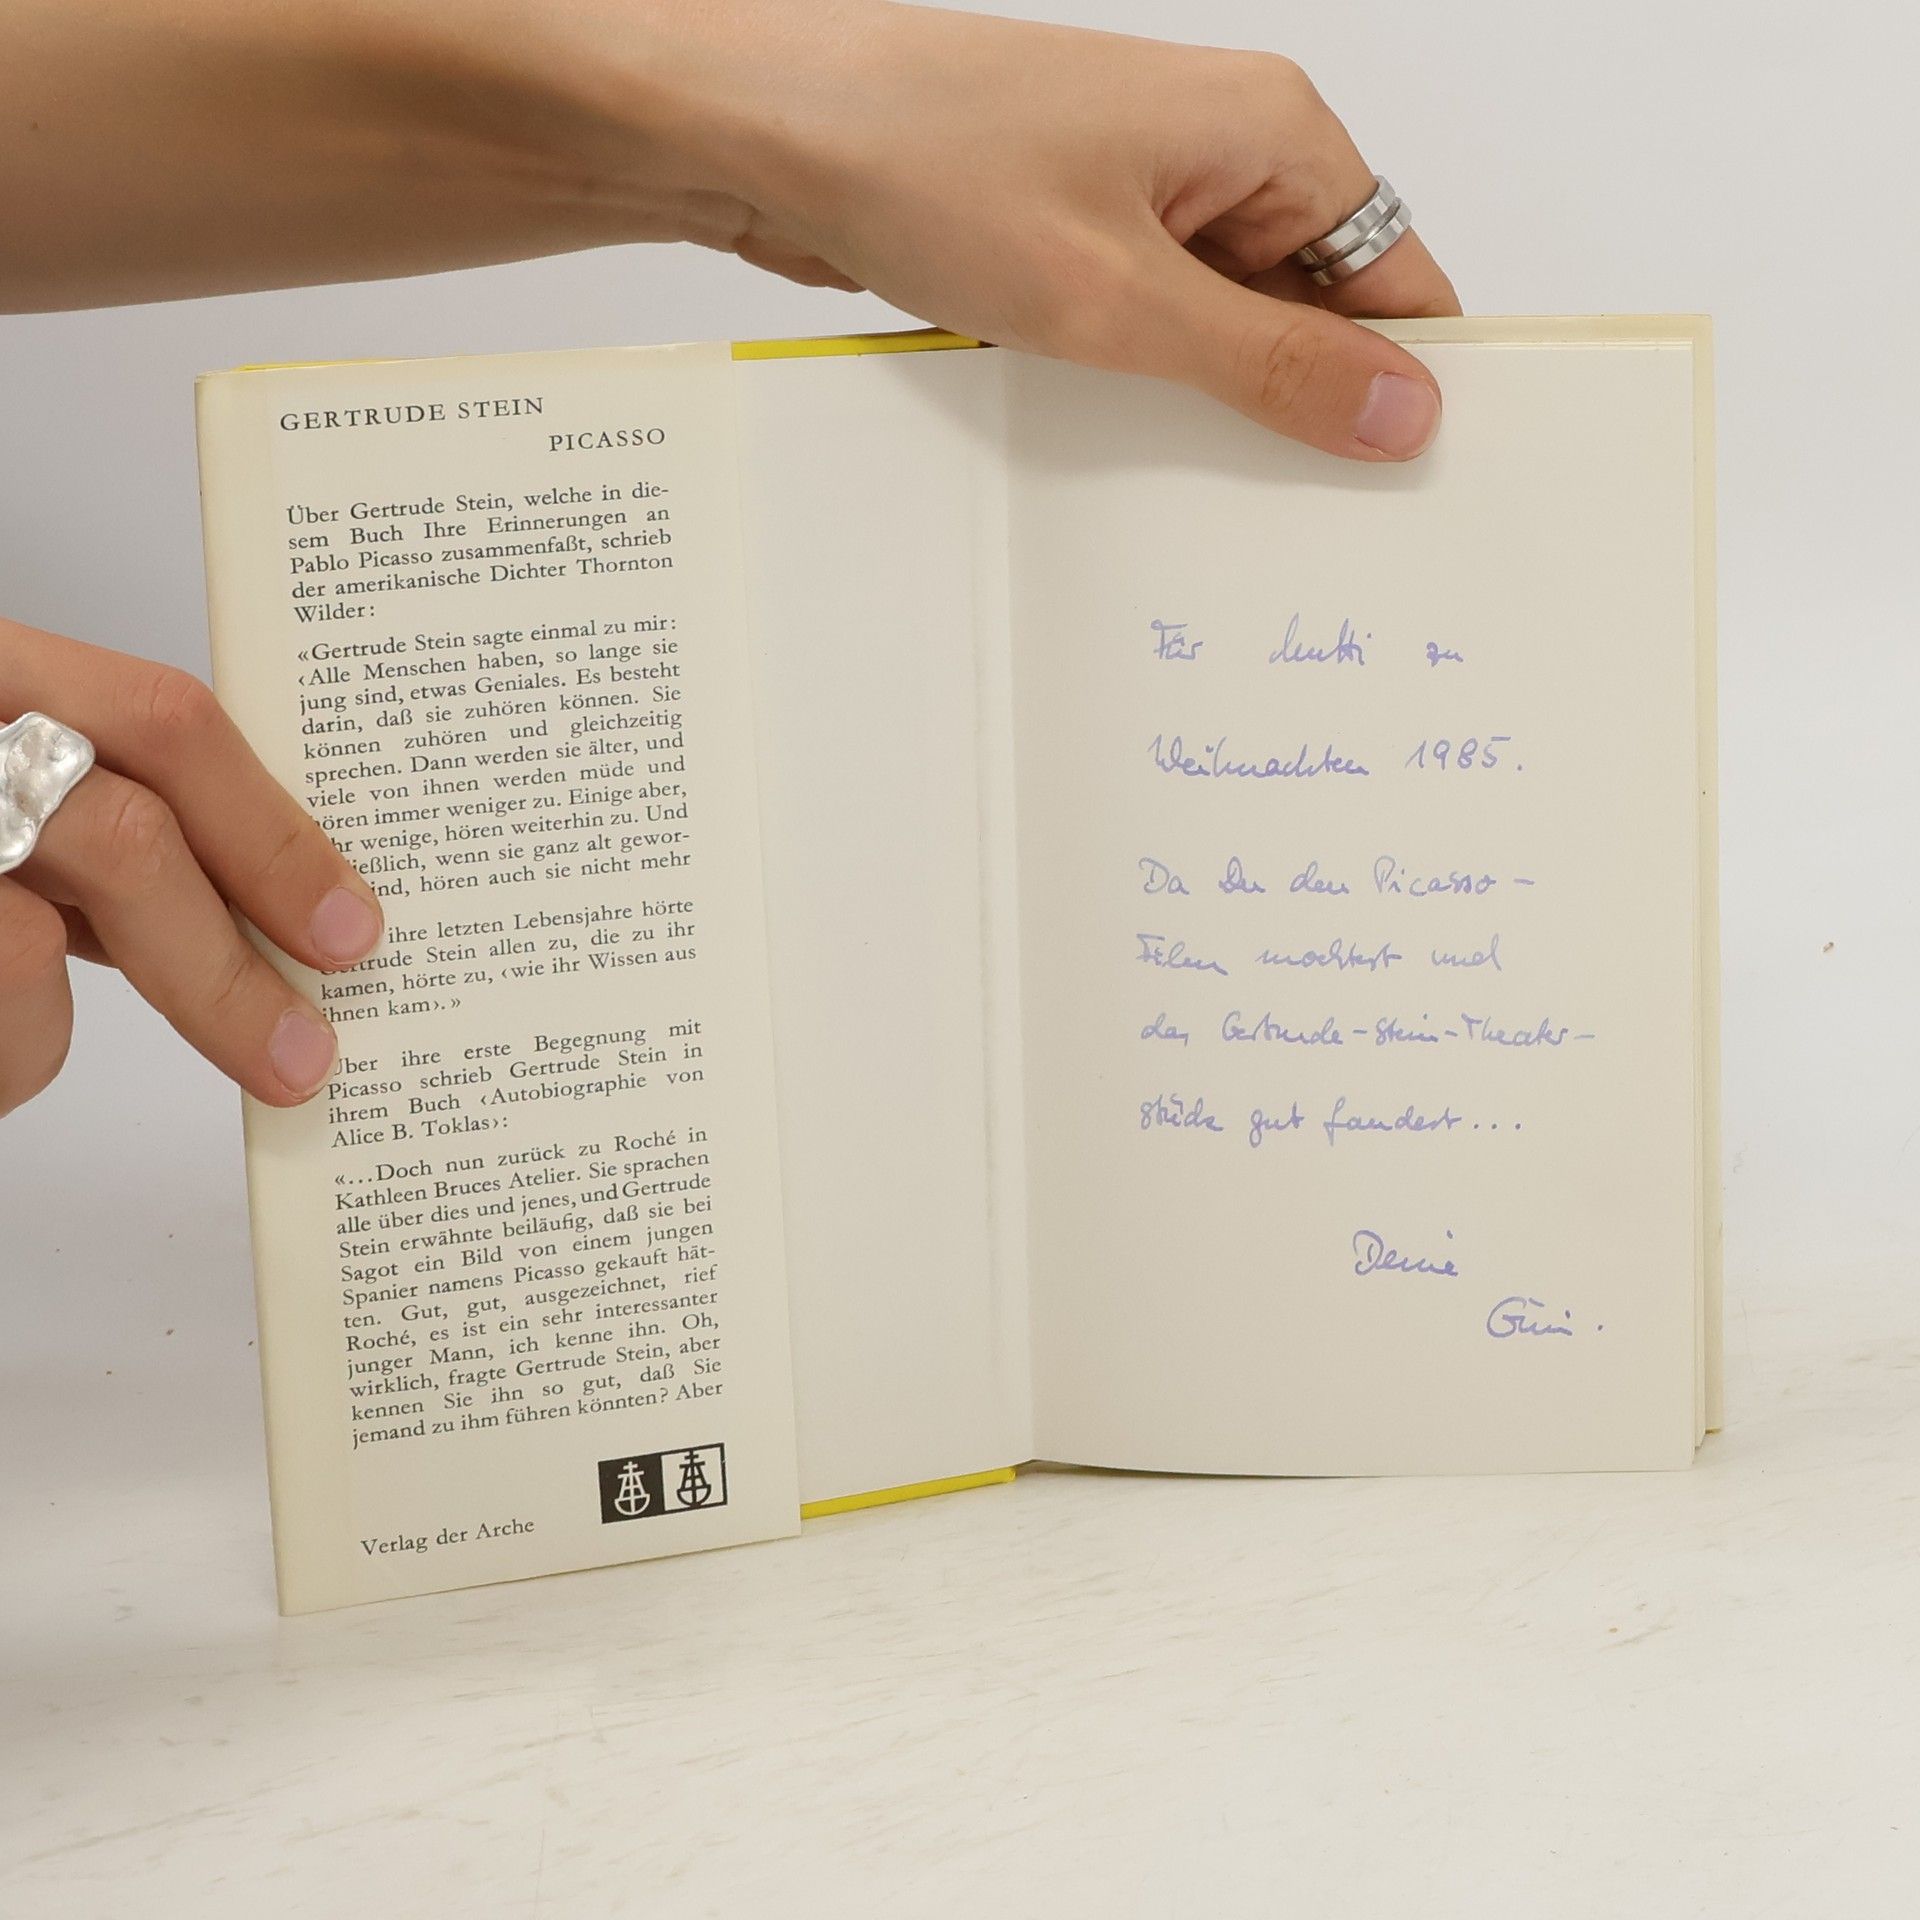 GERTRUDE STEIN
PICASSO
Über Gertrude Stein, welche in die-
sem Buch Ihre Erinnerungen an
Pablo Picasso zusammenfaßt, schrieb
der amerikanische Dichter Thornton
Wilder:
«Gertrude Stein sagte einmal zu mir:
‹Alle Menschen haben, so lange sie
jung sind, etwas Geniales. Es besteht
darin, daß sie zuhören können. Sie
können zuhören und gleichzeitig
sprechen. Dann werden sie älter, und
viele von ihnen werden müde und
ören immer weniger zu. Einige aber,
hr wenige, hören weiterhin zu. Und
ießlich, wenn sie ganz alt gewor-
ind, hören auch sie nicht mehr
ihre letzten Lebensjahre hörte
Gertrude Stein allen zu, die zu ihr
kamen, hörte zu, ‹wie ihr Wissen aus
ihnen kam›.»
Über ihre erste Begegnung mit
Picasso schrieb Gertrude Stein in
ihrem Buch ‹Autobiographie von
Alice B. Toklas›:
«...Doch nun zurück zu Roché in
Kathleen Bruces Atelier. Sie sprachen
alle über dies und jenes, und Gertrude
Stein erwähnte beiläufig, daß sie bei
Sagot ein Bild von einem jungen
Spanier namens Picasso gekauft hät-
ten. Gut, gut, ausgezeichnet, rief
Roché, es ist ein sehr interessanter
junger Mann, ich kenne ihn. Oh,
wirklich, fragte Gertrude Stein, aber
kennen Sie ihn so gut, daß Sie
jemand zu ihm führen könnten? Aber
Verlag der Arche
Für Mutti zu
Weihnachten 1985.
Da Du den Picasso-
Film mochtest und
das Gertrude-Stein-Theater-
stück gut fandest...
Deine